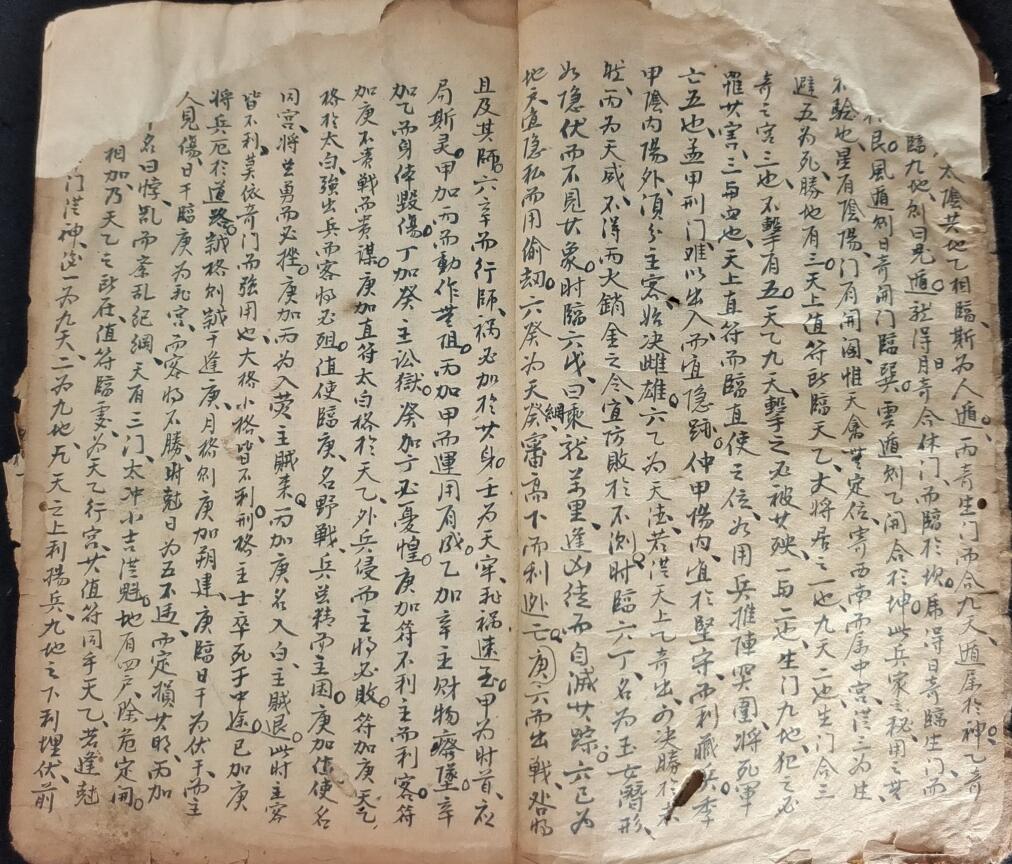 太陰共地乙相臨斯為人遁。丙奇生門而合九天、遁属於神。乙奇
臨九地、刱曰鬼遁。龍得日奇合休門、而臨於坎。虎得日奇臨生門而
艮。風遁刱日奇開門臨巽。雲遁刱乙開合於坤、此兵家之秘用之無
不験也。星有陰陽、門有開闔、惟天禽無定位、寄西南而属中宫、
避五為死、勝地有三、天上值符所臨天乙、大將居之一也、九天二也、生門合三
奇之宫三也、不擊有五。天乙九天、擊之必被其殃、一与二也、生門九地、犯之必
罹其害、三与四也、天上直符而臨直使之位、如用兵推陣突圍、将死軍
亡五也、孟甲刑门、难以出入而宜隐跡。仲甲陽内、宜於堅守而利藏兵。季
甲陰内陽外、須分主客、始决雌雄。六乙為天德、若從天上乙奇出、可决勝於
丙為天威、不得丙火銷金之令、宜防敗於不测。時臨六丁、名為玉女、
如隐伏而不見其象。时臨六戊、曰乘龍萬里、逢凶徒而自滅其踪。六己為
地天、宜隐私而用偷刧。六癸為天網、審高下而利逃亡。庚六而出戰、
且及其師。六辛而行師、禍必加於其身。壬為天牢、非禍速至。甲為时首、
局斯灵。甲加丙而動作無阻。丙加甲而運用有成。乙加辛主財物
加乙而身体毁傷。丁加癸、主訟獄。癸加丁必憂惶。庚加符不利主而利客、符
加庚不貴戦而貴謀。庚加直符、太白格於天乙、外兵侵而主将必敗。符加庚、天乙
格於太白、強出兵而客将必殂。值使臨庚、名野戰、兵無精而主困。庚加值使、名
同宫、将無勇而必挫。庚加丙為入荧、主賊来。丙加庚名入白、主賊退。此時主客
皆不利、莫依奇门而強用也、大格小格、皆不利。刑格主士卒死于中途。己加庚
将兵厄於道路。歲格刱歲干逢庚、月格刱庚加朔建、庚臨日干為伏干而主
人見傷、日干臨庚為飛宫、而客将不勝、时尅日為五不遇、而定損其明、丙加
名曰悖乱而紊乱紀綱、天有三门、太冲小吉從魁。地有四户、除危定開。
相加乃天乙之所在、值符臨處、為天乙行宫、共值符同乎天乙、若逢尅
门從神、後一為九天、二為九地、九天之上利揚兵、九地之下利埋伏、前